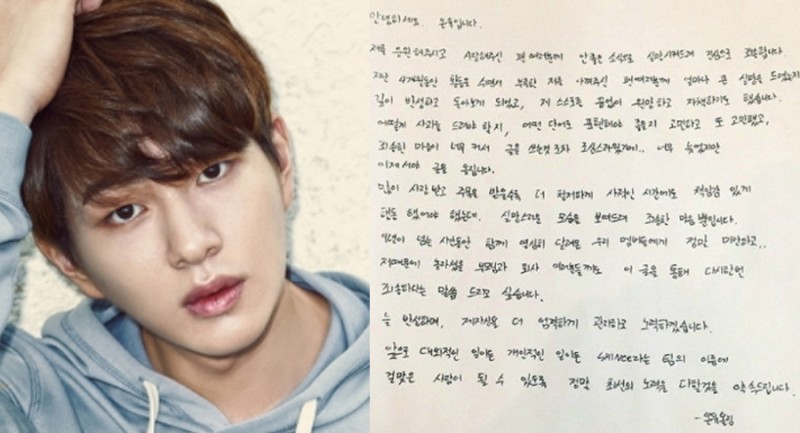 안녕하세요. 온유입니다.
저를 응원해주시고 사랑해주신 팬 여러분께 안좋은 소식으로 실망시켜드려 진심으로 죄송합니다.
지난 4개월동안 활동을 쉬면서 부족한 저를 아껴주신 팬여러분께 얼마나 큰 실망을 드렸는지
깊이 반성하고 돌아보게 되었고, 저 스스로를 끝없이 원망하고 자책하기도 했습니다.
어떻게 사과를 드려야 할지, 어떤 단어로 표현해야 좋을지 고민하고 또 고민했고,
죄송한 마음이 너무 커서 글을 쓰는것 조차 조심스러웠기에.. 너무 늦었지만
이제서야 글을 올립니다.
많이 사랑 받고 주목을 받을수록 더 철저하게 사적인 시간에도 책임감 있게
행동 했어야 했는데. 실망스러운 모습을 보여드려 죄송한 마음 뿐입니다.
9년이 넘는 시간동안 함께 열심히 달려온 우리 멤버들에게 정말 미안하고..
저때문에 놀라셨을 부모님과 회사 여러분들께도 이 글을 통해 다시한번
죄송하다는 말씀 드리고 싶습니다.
늘 반성하며, 제자신을 더 엄격하게 관리하고 노력하겠습니다.
앞으로 대외적인 일이든 개인적인 일이든 SHINee라는 팀의 이름에
걸맞은 사람이 될 수 있도록 정말 최선의 노력을 다할것을 약속드립니다.
- 온유올림